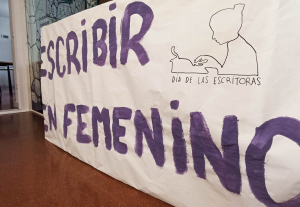 ESCRIBIR
DIA DE LAS ESCRITORAS
EN FEMENINO